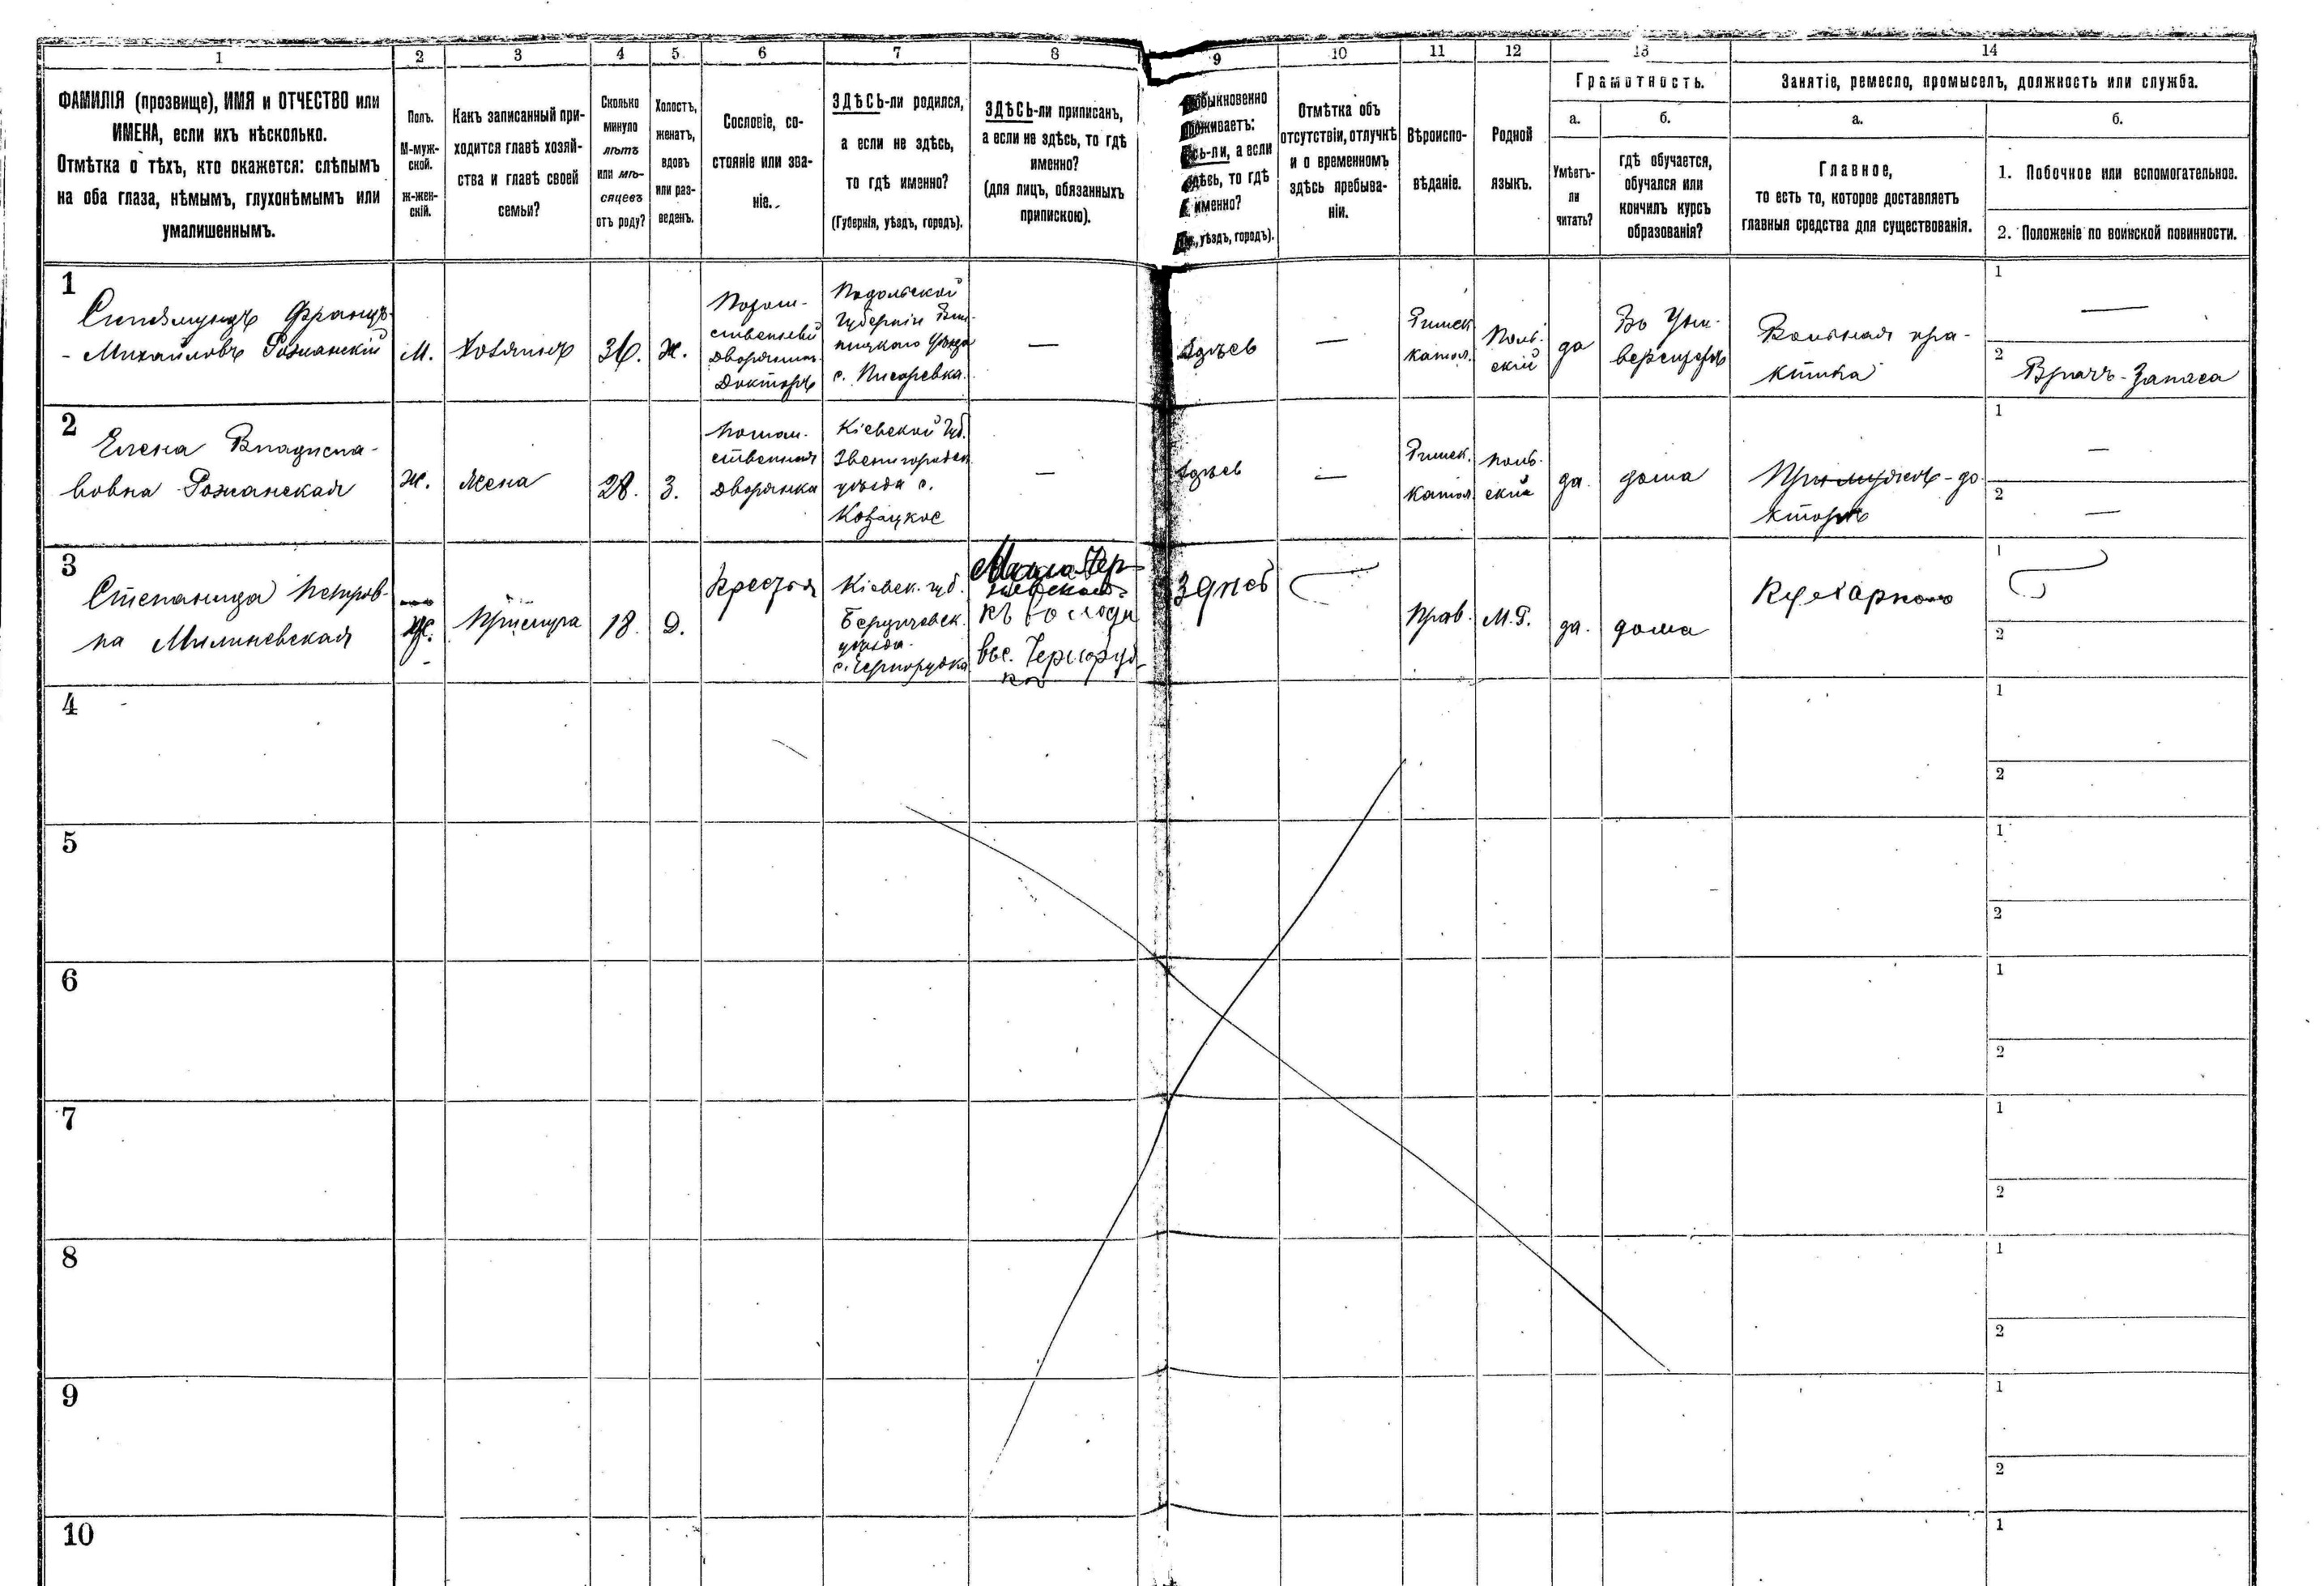 1 2 3 4 5 6 7 8 9 10 11 12 13 14
ФАМИЛІЯ (прозвище), ИМЯ и ОТЧЕСТВО или
ИМЕНА, если ихъ нѣсколько.
Отмѣтка о тѣхъ, кто окажется: слѣпымъ
на оба глаза, нѣмымъ, глухонѣмымъ или
умалишеннымъ.
Полъ.
М-муж-
ской.
ж-жен-
скій.
Какъ записанный при-
ходится главѣ хозяй-
ства и главѣ своей
семьи?
Сколько
минуло
лѣтъ
или мѣ-
сяцевъ
отъ роду?
Холостъ,
женатъ,
вдовъ
или раз-
веденъ.
Сословіе, со-
стояніе или зва-
ніе.
ЗДѢСЬ-ли родился,
а если не здѣсь,
то гдѣ именно?
(Губернія, уѣздъ, городъ).
ЗДѢСЬ-ли приписан,
а если не здѣсь, то гдѣ
именно?
(для лицъ, обязанныхъ
припискою).
быкновенно
живаетъ:
сь-ли, а если
здѣсь, то гдѣ
именно?
уѣздъ, городъ).
Отмѣтка объ
отсутствіи, отлучкѣ
и о временномъ
здѣсь пребыва-
ніи.
Вѣроиспо-
вѣданіе.
Родной
языкъ.
Грамотность.
а.
Умѣетъ-
ли
читать?
б.
гдѣ обучается,
обучался или
кончилъ курсъ
образованія?
Занятіе, ремесло, промыселъ, должность или служба.
а.
Главное,
то есть то, которое доставляетъ
главныя средства для существованія.
б.
1. Побочное или вспомогательное.
2. Положеніе по воинской повинности.
1
Сигизмундъ Францъ-
- Михайловъ Рожанскій
М.
Хозяинъ
36.
ж.
Потом-
ственный
Дворянинъ
Докторъ
Подольской
Губерніи Вин-
ницкаго Уѣзда
с. Писаревка.
—
здѣсь
—
Римск.
катол.
Поль-
скій
да
Въ Уни-
верситетѣ
Вольная пра-
ктика
1
—
2
Врачъ-Запаса
2
Елена Владисла-
вовна Рожанская
Ж.
Жена
28.
З.
Потом-
ственная
Дворянка
Кіевской Губ.
Звенигородск.
уѣзда с.
Козацкое
—
здѣсь
—
Римск.
катол.
поль-
скій
да.
дома
При мужѣ-до-
кторѣ
1
—
2
—
3
Степанида Петров-
на Милиневская
Ж.
Прислуга
18.
Д.
Крестья
Кіевск. губ.
Бердичевск.
уѣзда
с. Чернорудка
вс. Черноруд-
ка
Здѣсь
Прав.
М.Р.
да.
дома
Кухаркою
1
2
4
1
2
5
1
2
6
1
2
7
1
2
8
1
2
9
1
2
10
1